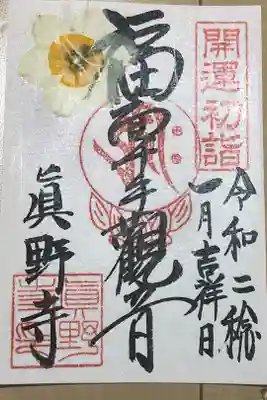 開運初詣
令和二稔
一月吉祥日
福 手觀音
眞野寺